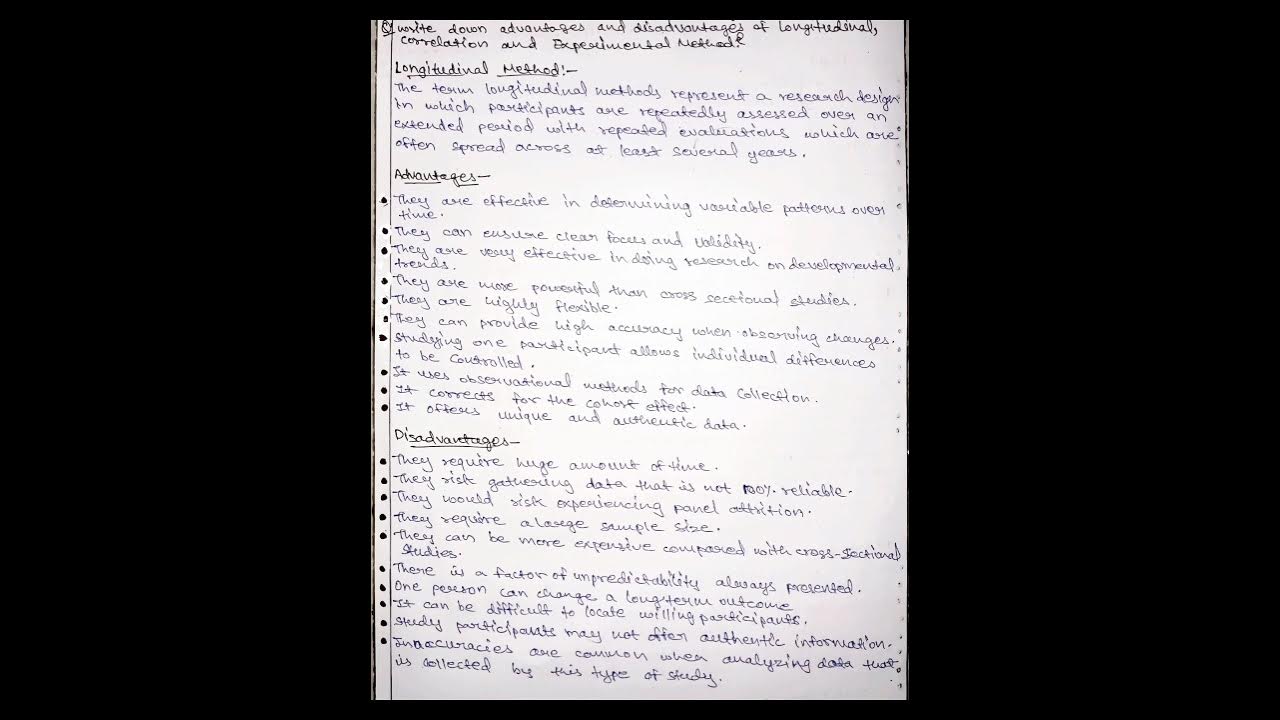 Q write down advantages and disadvantages of Longitudinal,
correlation and Experimental Method?
Longitudinal Method:-
The term longitudinal methods represent a research design
in which participants are repeatedly assessed over an
extended period with repeated evaluations which are
often spread across at least several years.
Advantages-
• They are effective in determining variable patterns over
time.
• They can ensure clear focus and validity.
• They are very effective in doing research on developmental
trends.
• They are more powerful than cross sectional studies.
• They are highly flexible.
• They can provide high accuracy when observing changes.
• Studying one participant allows individual differences
to be controlled.
• It uses observational methods for data collection.
• It corrects for the cohort effect.
• It offers unique and authentic data.
Disadvantages-
• They require huge amount of time.
• They risk gathering data that is not 100% reliable.
• They would risk experiencing panel attrition.
• They require a large sample size.
• They can be more expensive compared with cross-sectional
studies.
• There is a factor of unpredictability always presented.
• One person can change a long term outcome
• It can be difficult to locate willing participants.
• Study participants may not offer authentic information.
• Inaccuracies are common when analyzing data that
is collected by this type of study.